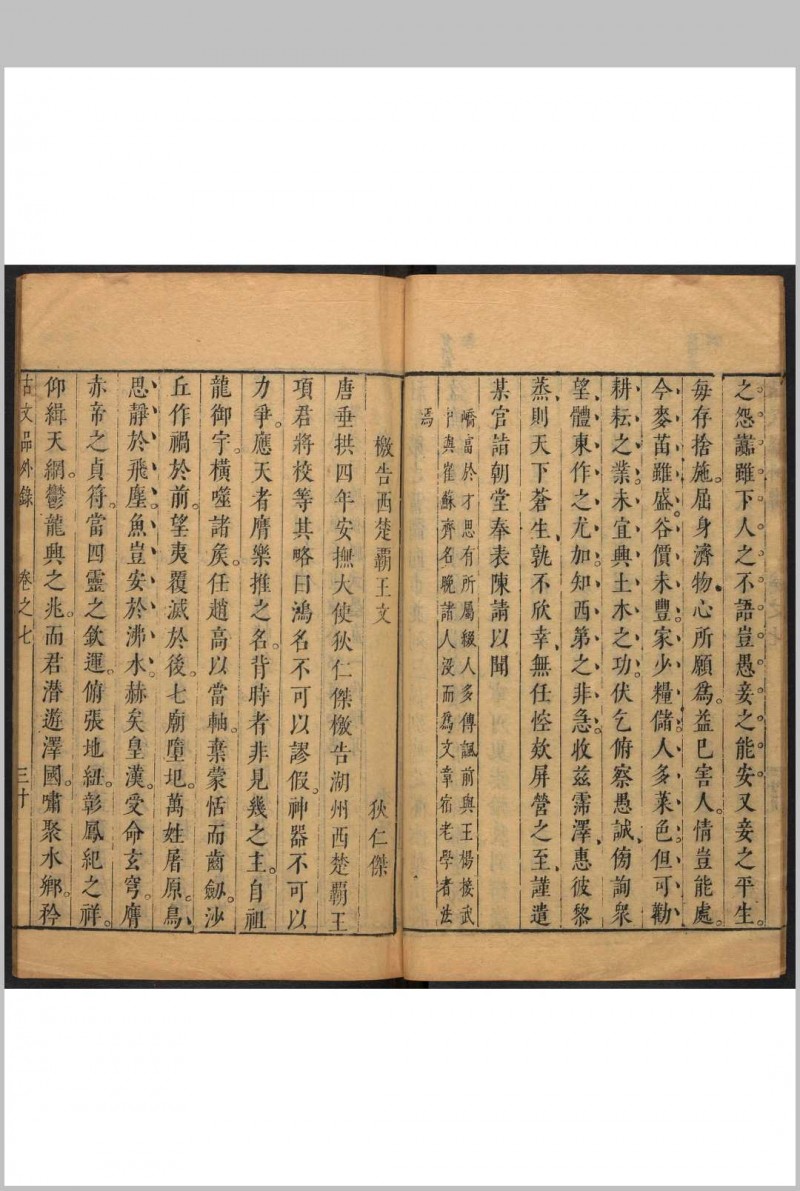 之怨讟雖下人之不語豈愚妾之能安又妾之平生
每存捨施。屈身濟物心所願為。益已害人。情豈能處。
今麥苗雖盛。谷價未豐。家少糧儲。人多菜色。但可勸
耕耘之業。未宜興土木之功。伏乞俯察愚誠、傍詢衆
望、體東作之尤加。知西第之非急。收茲霈澤、惠彼黎
蒸。則天下蒼生、孰不欣幸、無任悾欵屏營之至、謹遣
某官請朝堂奉表陳請以聞
嶠富於才思有所屬綴人多傳諷前與王楊接武
中與崔蘇齊名晚諸人没而為文章宿老學者法
焉
檄告西楚霸王文 狄仁傑
唐垂拱四年安撫大使狄仁傑檄告湖州西楚霸王
項君將校等其略曰鴻名不可以謬假。神器不可以
力爭。應天者膺樂推之名。背時者非見幾之主。自祖
龍御宇。橫噬諸矦。任趙高以當軸。棄蒙恬而齒劒。沙
丘作禍於前。望夷覆滅於後。七廟墮圯。萬姓屠原。鳥
思靜於飛塵。魚豈安於沸水。赫矣皇漢。受命玄穹。膺
赤帝之貞符。當四靈之欽運。俯張地紐。彰鳳紀之祥。
仰緝天網。鬱龍興之兆。而君潜遊澤國。嘯聚水鄉。矜
古文品外錄 卷之七 三十